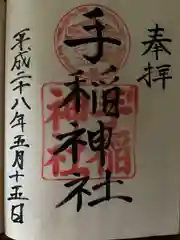 奉拝
手稲神社
平成二十八年五月十五日